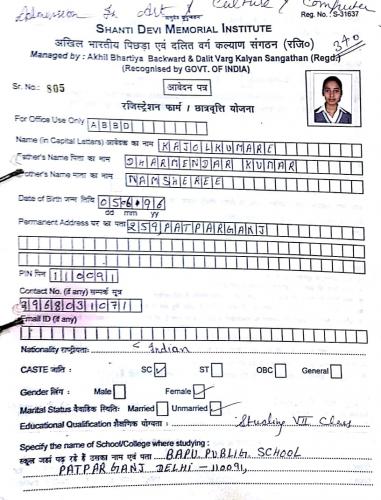 Admission In Art & Culture & Computer
Reg. No. : S-31637
SHANTI DEVI MEMORIAL INSTITUTE
अखिल भारतीय पिछड़ा एवं दलित वर्ग कल्याण संगठन (रजि०)
Managed by : Akhil Bhartiya Backward & Dalit Varg Kalyan Sangathan (Regd.)
(Recognised by GOVT. OF INDIA)
370
Sr. No.: 805
आवेदन पत्र
रजिस्ट्रेशन फार्म / छात्रवृत्ति योजना
For Office Use Only ABBD
Name (in Capital Letters) आवेदक का नाम KAJOLKUMARE
Father's Name पिता का नाम DHARMENDAR KUMAR
Mother's Name माता का नाम NAMSHEREE
Date of Birth जन्म तिथि 05.6.96
dd mm yy
Permanent Address घर का पता 259PATPARGANJ
PIN पिन 110091
Contact No. (if any) सम्पर्क सूत्र
9968031071
Email ID (if any)
Nationality राष्ट्रीयता: Indian
CASTE जाति : SC ST OBC General
Gender लिंग : Male Female
Marital Status वैवाहिक स्थिति: Married Unmarried
Educational Qualification शैक्षणिक योग्यता : Studing VII Class
Specify the name of School/College where studying :
स्कूल जहां पढ़ रहे हैं उसका नाम एवं पता BAPU PUBLIG SCHOOL
PATPARGANJ DELHI-110091,